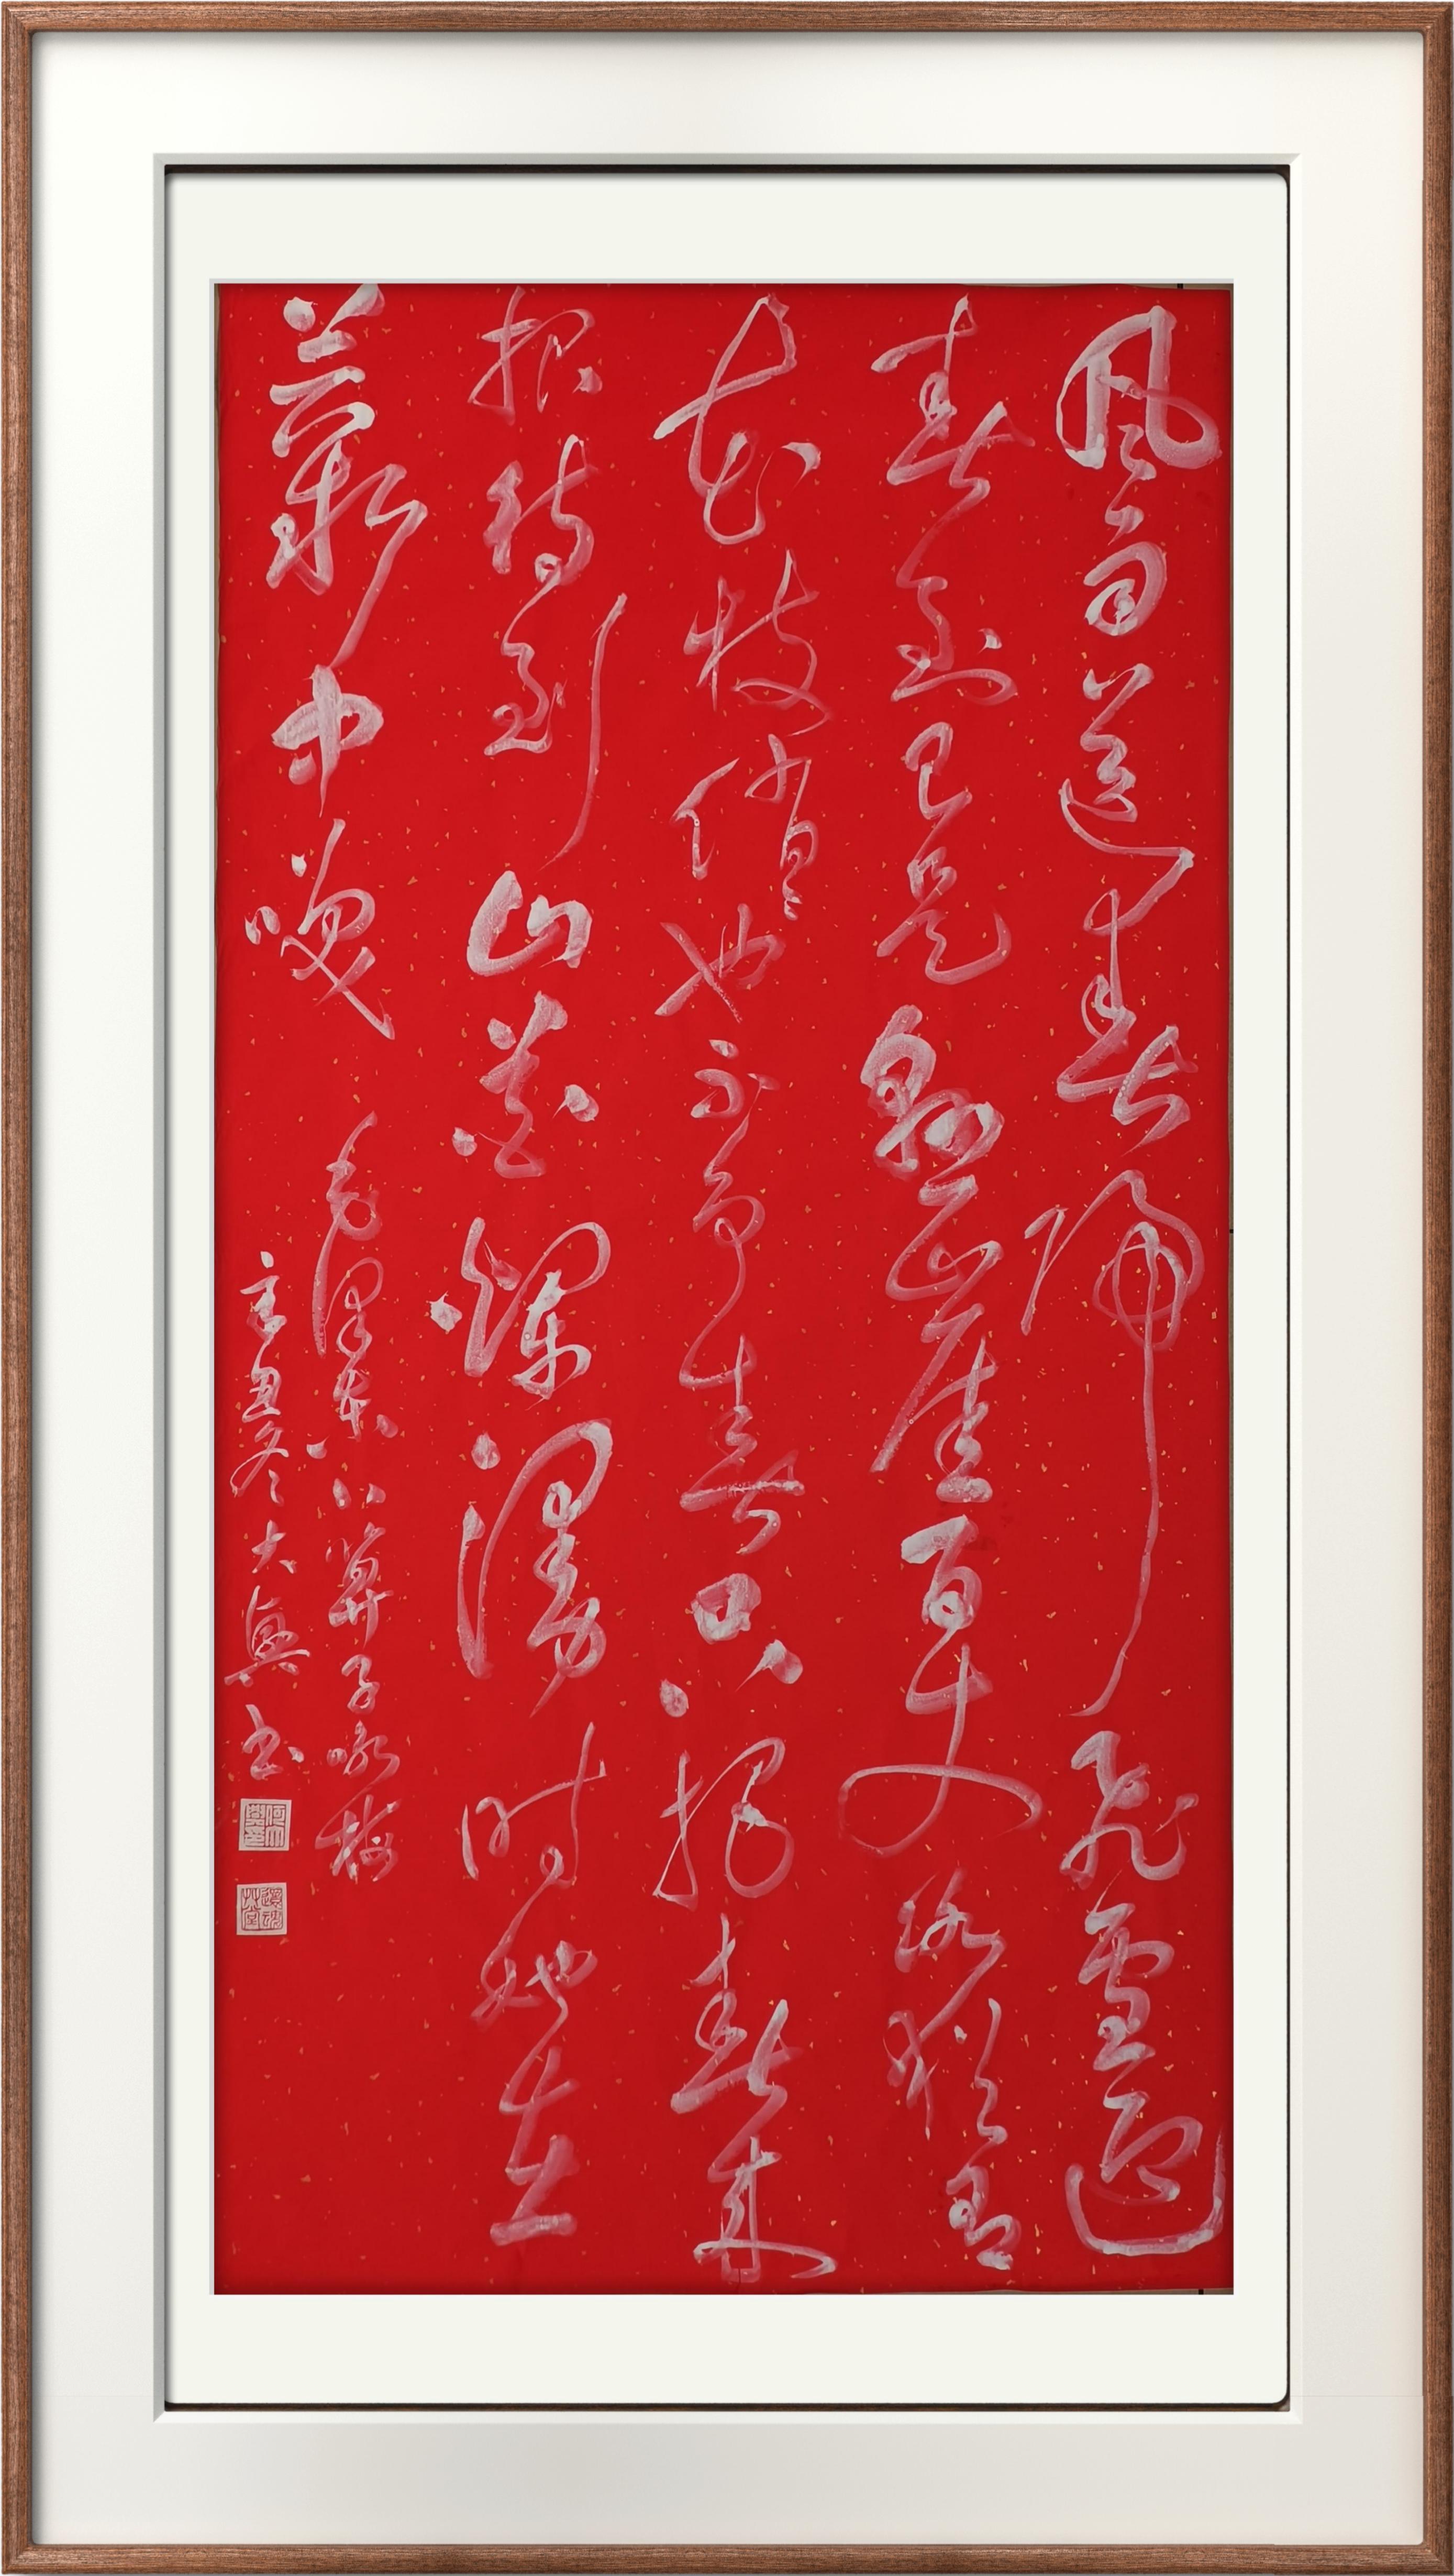 风雨送春归飞雪迎
春到已是悬崖百丈冰犹有
花枝俏也不争春只把春来
报待到山花烂漫时她在
丛中笑
毛泽东卜算子咏梅
辛丑冬大书